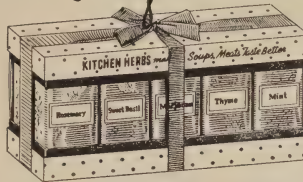 KITCHEN HERBS make Soups, Meats Taste Better
Rosemary
Sweet Basil
Marjoram
Thyme
Mint